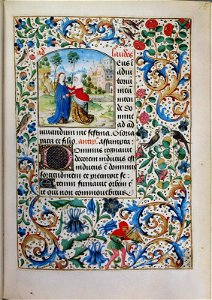 laudes
Eus
adiu
torium
meum
Do
ne ad
iuuandum me festina Gloria
patri et filio. Assumpta
Ominus regnauit
decorem indutus est
indutus est domin
fortitudinem et precinxit se
tenim firmauit orbem
qui non commouebitur